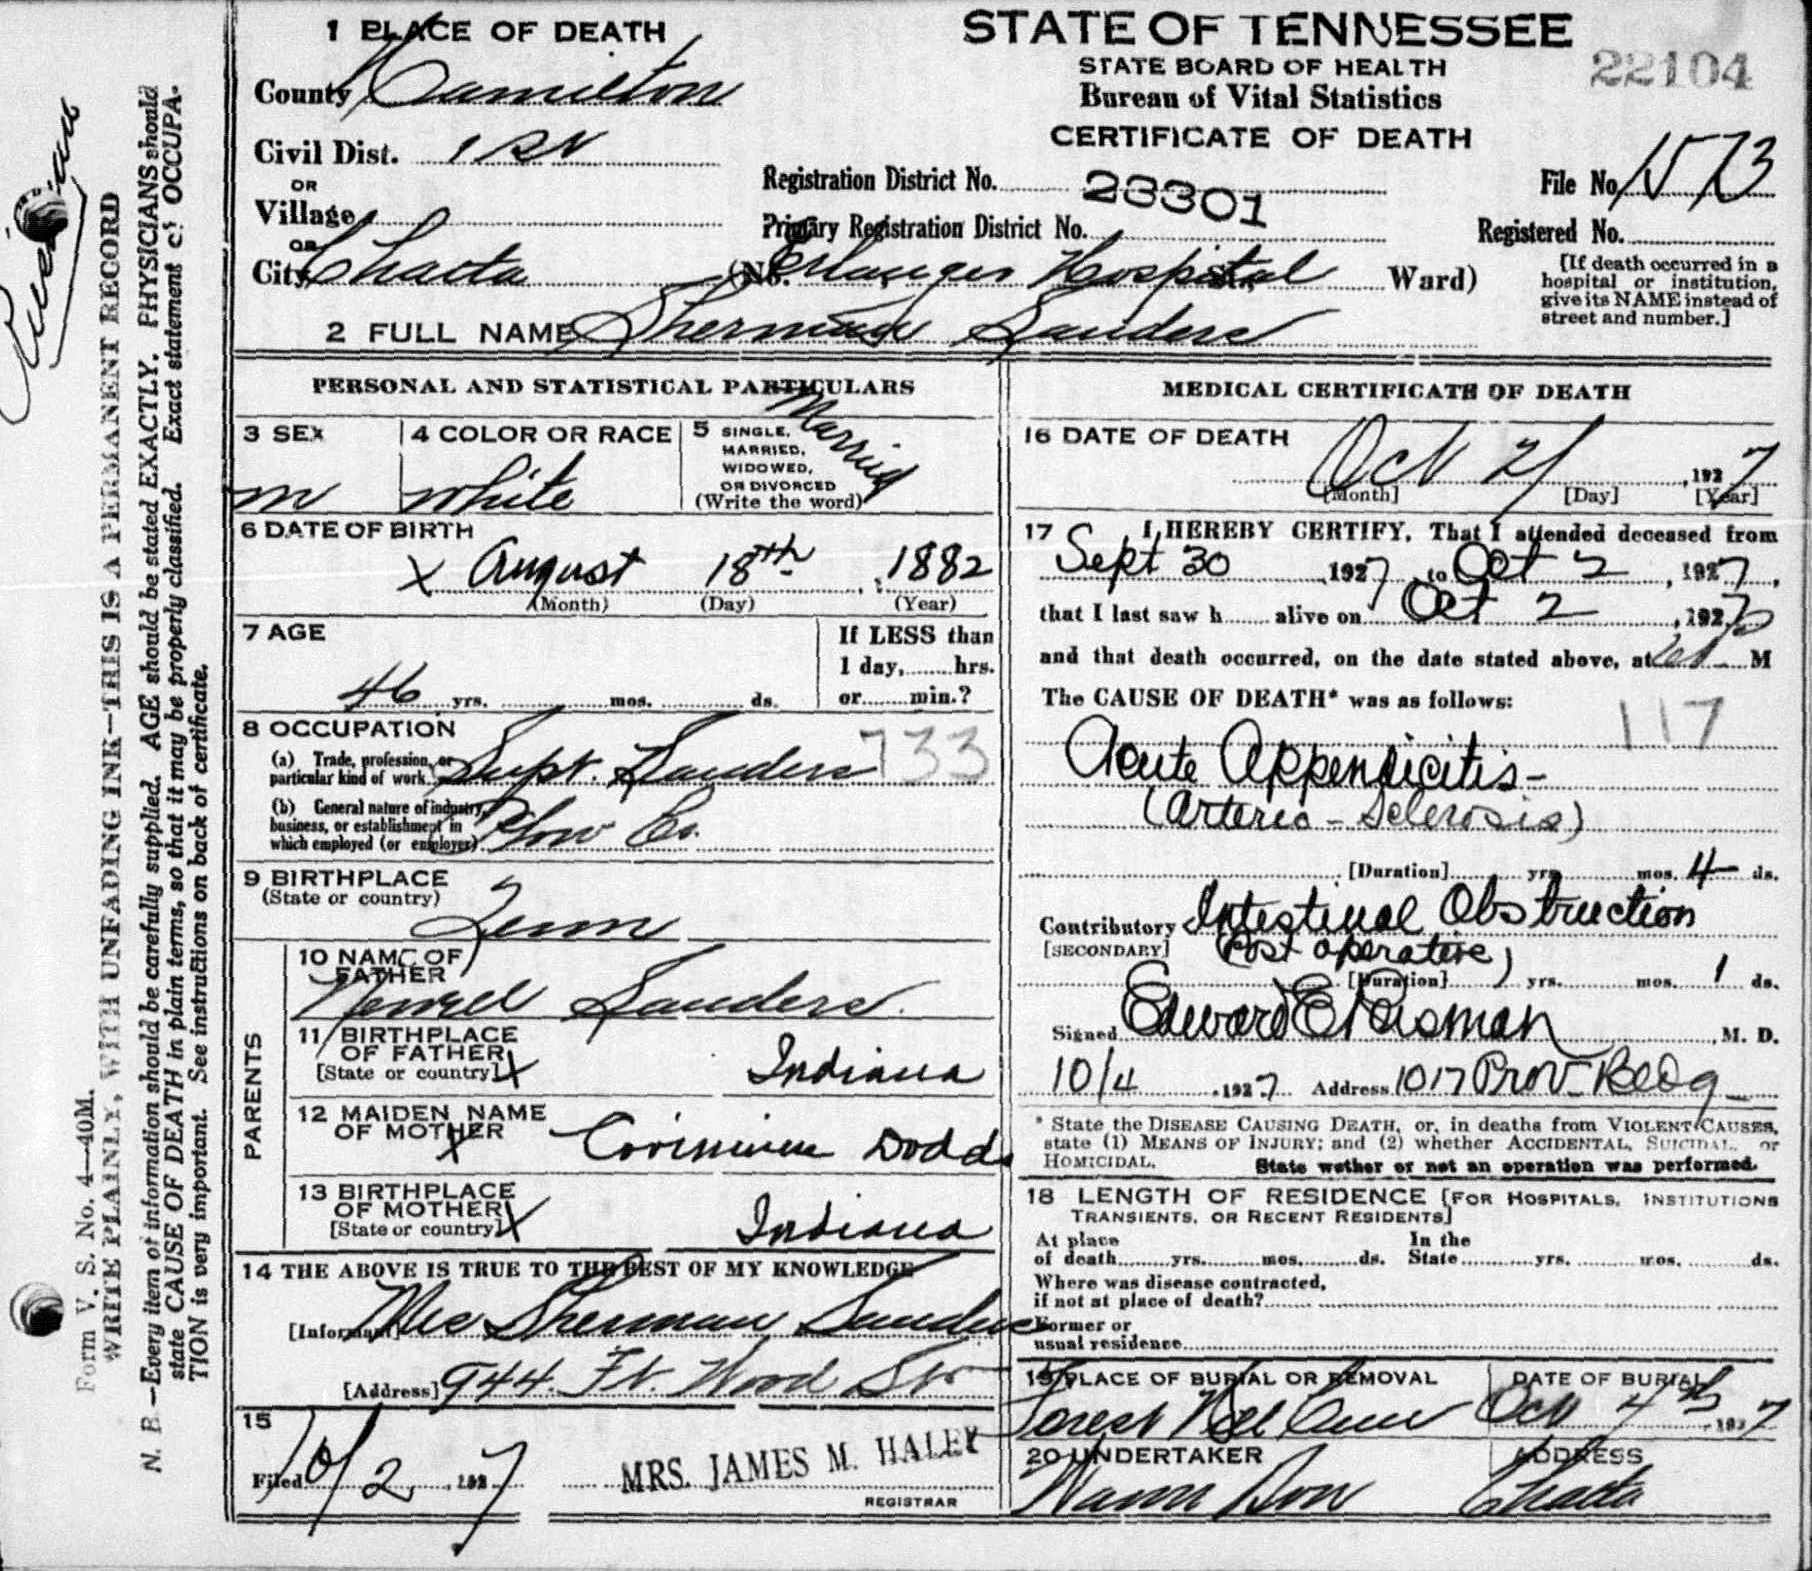 1 PLACE OF DEATH
County Hamilton
Civil Dist. 1
OR
Village
OR
City Chatta (No. Erlanger Hospital St., Ward)
2 FULL NAME Sherman Sanders
STATE OF TENNESSEE
STATE BOARD OF HEALTH
Bureau of Vital Statistics
CERTIFICATE OF DEATH
22104
Registration District No. 23301
Primary Registration District No.
File No. 1573
Registered No.
[If death occurred in a
hospital or institution,
give its NAME instead of
street and number.]
PERSONAL AND STATISTICAL PARTICULARS
3 SEX
m
4 COLOR OR RACE
white
5 SINGLE,
MARRIED,
WIDOWED,
OR DIVORCED
(Write the word)
Married
6 DATE OF BIRTH
X August 18th , 1882
(Month) (Day) (Year)
7 AGE
46 yrs. mos. ds.
If LESS than
1 day, hrs.
or min.?
8 OCCUPATION
(a) Trade, profession, or
particular kind of work Supt. Sanders 733
(b) General nature of industry,
business, or establishment in
which employed (or employer) Plow Co.
9 BIRTHPLACE
(State or country)
Tenn
PARENTS
10 NAME OF
FATHER
Sanders
11 BIRTHPLACE
OF FATHER
[State or country] X Indiana
12 MAIDEN NAME
OF MOTHER X Dodds
13 BIRTHPLACE
OF MOTHER
[State or country] X Indiana
14 THE ABOVE IS TRUE TO THE BEST OF MY KNOWLEDGE
[Informant] Mrs Sherman Sanders
[Address] 944 Ft. Wood St
15
Filed 10/2, 1927 MRS. JAMES M. HALEY
REGISTRAR
MEDICAL CERTIFICATE OF DEATH
16 DATE OF DEATH
Oct 2 , 1927
[Month] [Day] [Year]
17 I HEREBY CERTIFY, That I attended deceased from
Sept 30 , 1927, to Oct 2 , 1927,
that I last saw h alive on Oct 2 , 1927,
and that death occurred, on the date stated above, at M
The CAUSE OF DEATH* was as follows:
117
Acute Appendicitis-
(Arterio-Sclerosis)
[Duration] yrs. mos. 4 ds.
Contributory Intestinal Obstruction
[SECONDARY] (Post operative)
[Duration] yrs. mos. 1 ds.
Signed Edward E Reisman, M. D.
10/4 , 1927 Address 1017 Prov- Bldg
* State the DISEASE CAUSING DEATH, or, in deaths from VIOLENT CAUSES,
state (1) MEANS OF INJURY; and (2) whether ACCIDENTAL, SUICIDAL, or
HOMICIDAL. State wether or not an operation was performed.
18 LENGTH OF RESIDENCE [FOR HOSPITALS, INSTITUTIONS
TRANSIENTS, OR RECENT RESIDENTS]
At place In the
of death yrs. mos. ds. State yrs. mos. ds.
Where was disease contracted,
if not at place of death?
Former or
usual residence
19 PLACE OF BURIAL OR REMOVAL
Forest Hill Cem
DATE OF BURIAL
Oct 4th , 1927
20 UNDERTAKER
Wann Son
ADDRESS
Chatta
Form V. S. No. 4—40M.
WRITE PLAINLY, WITH UNFADING INK—THIS IS A PERMANENT RECORD
N. B.—Every item of information should be carefully supplied. AGE should be stated EXACTLY. PHYSICIANS should
state CAUSE OF DEATH in plain terms, so that it may be properly classified. Exact statement of OCCUPA-
TION is very important. See instructions on back of certificate.